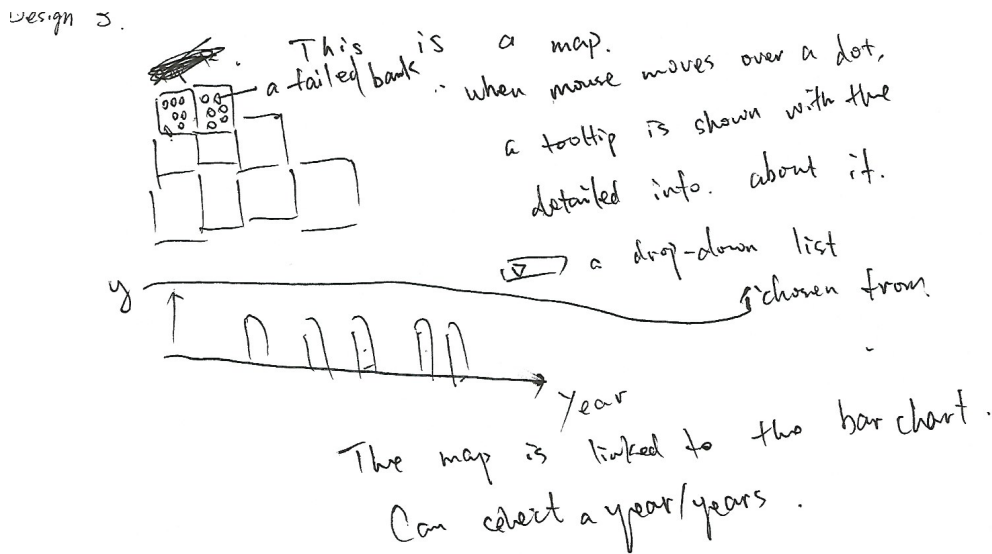 Design 3.
This is a map.
a failed bank
when mouse moves over a dot,
a tooltip is shown with the
detailed info. about it.
a drop-down list
y chosen from.
year
The map is linked to the bar chart.
Can select a year/years.